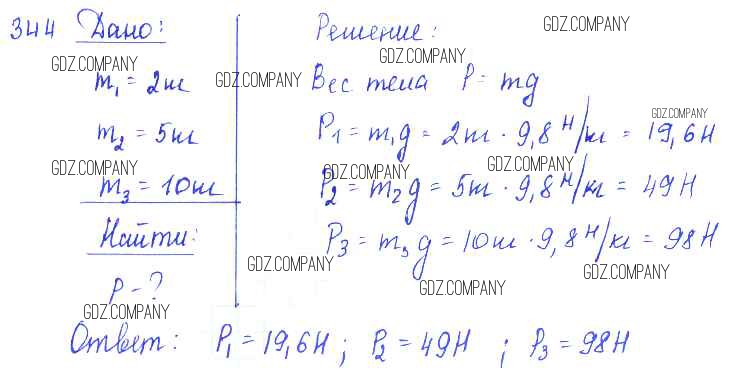 344 Дано:
m₁ = 2кг
m₂ = 5кг
m₃ = 10кг
Найти:
P - ?
Решение:
Вес тела P = mg
P₁ = m₁g = 2кг · 9,8 Н/кг = 19,6Н
P₂ = m₂g = 5кг · 9,8 Н/кг = 49Н
P₃ = m₃g = 10кг · 9,8 Н/кг = 98Н
Ответ: P₁ = 19,6Н ; P₂ = 49Н ; P₃ = 98Н
GDZ.COMPANY
GDZ.COMPANY
GDZ.COMPANY
GDZ.COMPANY
GDZ.COMPANY
GDZ.COMPANY
GDZ.COMPANY
GDZ.COMPANY
GDZ.COMPANY
GDZ.COMPANY
GDZ.COMPANY
GDZ.COMPANY
GDZ.COMPANY